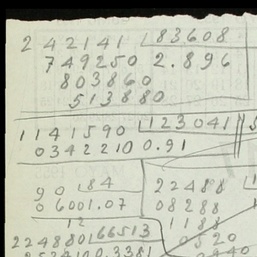 242141 83608
749250 2.896
803860
513880
1141590 123041
0342210 0.91
90 84
06001.07
12
22488
08288
1188
0520
224880 66513
0.3381